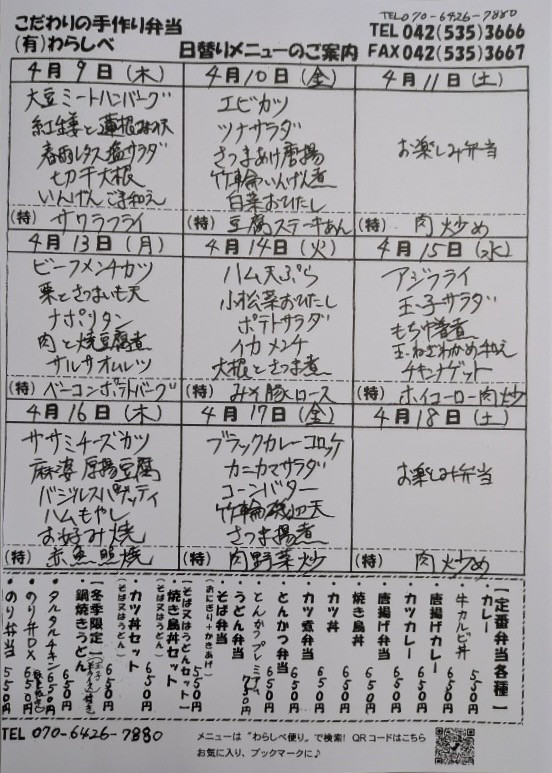 TEL 070-6426-7880
こだわりの手作り弁当
TEL 042(535)3666
(有)わらしべ
日替りメニューのご案内
FAX 042(535)3667
4月9日(木)
大豆ミートハンバーグ
春雨レタス塩サラダ
切干大根
いんげんごま和え
(特) サワラフライ
4月10日(金)
エビカツ
ツナサラダ
さつまあげ唐揚
竹輪いんげん煮
白菜おひたし
(特) 豆腐ステーキあん
4月11日(土)
お楽しみ弁当
(特) 肉炒め
4月13日(月)
ビーフメンチカツ
栗とさつまいも天
ナポリタン
肉と焼豆腐煮
サルサオムレツ
(特) ベーコンポテトバーグ
4月14日(火)
ハム天ぷら
小松菜おひたし
ポテトサラダ
イカメンチ
大根とさつま煮
(特) みそ豚ロース
4月15日(水)
アジフライ
玉子サラダ
もち巾着煮
玉ねぎわかめ和え
チキンナゲット
(特) ホイコーロー肉炒
4月16日(木)
ササミチーズカツ
麻婆厚揚豆腐
バジルスパゲッティ
ハムもやし
お好み焼
(特) 赤魚照焼
4月17日(金)
ブラックカレーコロッケ
カニカマサラダ
コーンバター
竹輪磯辺天
さつま揚煮
(特) 肉野菜炒
4月18日(土)
お楽しみ弁当
(特) 肉炒め
【定番弁当各種】
・カレー 550円
・牛カルビ丼 650円
・唐揚げカレー 650円
・カツカレー 650円
・唐揚げ弁当 650円
・焼き鳥丼 650円
・カツ丼 650円
・カツ煮弁当 650円
・とんかつ弁当 650円
・とんかつプレミアム 750円
・うどん弁当
・そば弁当
(おにぎり+かきあげ) 550円
【そば又はうどんセット】
・焼き鳥丼セット
(そば又はうどん) 650円
・カツ丼セット
(そば又はうどん) 650円
【冬季限定】
・鍋焼きうどん 650円
・タルタルチキン 650円
・のり弁DX 650円
・のり弁当 550円
TEL 070-6426-7880
メニューは"わらしべ便り"で検索! QRコードはこちら
お気に入り、ブックマークに♪